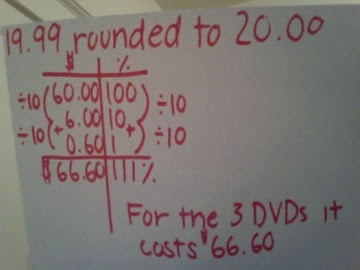 19.99 rounded to 20.00
$ %
÷10 60.00 100 ÷10
÷10 + 6.00 10 + ÷10
0.60 1
$66.60 111%
For the 3 DVDs it
costs $66.60